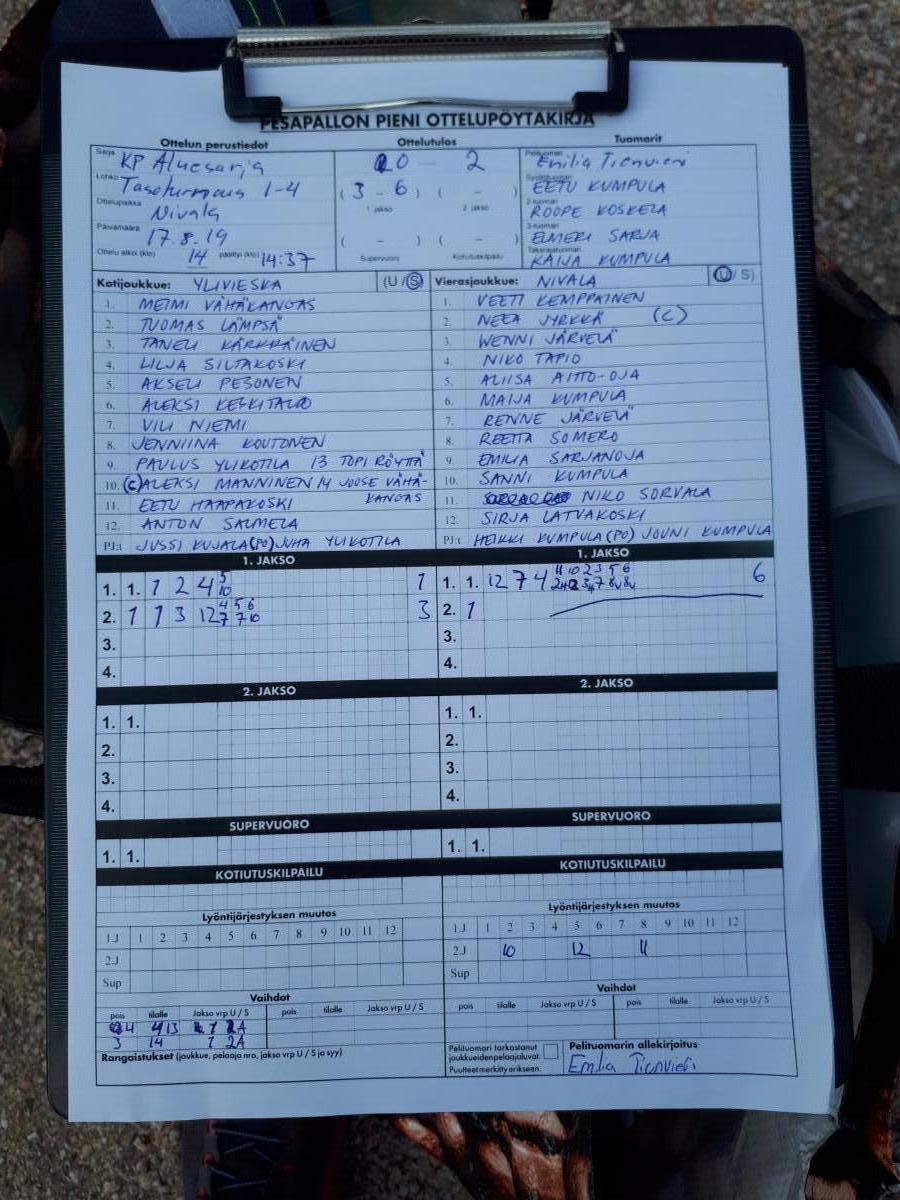 PESAPALLON PIENI OTTELUPÖYTÄKIRJA
Ottelun perustiedot
Sarja KP Aluesarja
Lohko Tasoturnaus 1-4
Ottelupaikka Nivala
Päivämäärä 17.8.19
Ottelu alkoi (klo) 14 päättyi (klo) 14:37
Ottelutulos
0 - 2
( 3 - 6 ) ( - )
1. jakso 2. jakso
( - ) ( - )
Supervuoro Kotiutuskilpailu
Tuomarit
Pelituomari Emilia Tienvieri
Syöttötuomari EETU KUMPULA
2-tuomari ROOPE KOSKELA
3-tuomari ELMERI SARJA
Takarajatuomari KAIJA KUMPULA
Kotijoukkue: YLIVIESKA (U / S)
1. MEIMI VÄHÄKANGAS
2. TUOMAS LÄMPSÄ
3. TANELI KÄRKKÄINEN
4. LILJA SILTAKOSKI
5. AKSELI PESONEN
6. ALEKSI KESKITALO
7. VILI NIEMI
8. JENNIINA KOUTONEN
9. PAULUS YLIKOTILA 13 TOPI RÖYTTÄ
10. (C) ALEKSI MANNINEN 14 JOOSE VÄHÄ-
11. EETU HAAPAKOSKI KANGAS
12. ANTON SALMELA
PJ:t JUSSI KUJALA (PO) JUHA YLIKOTILA
Vierasjoukkue: NIVALA (U / S)
1. VEETI KEMPPAINEN
2. NEEA JYRKKÄ (C)
3. WENNI JÄRVELÄ
4. NIKO TAPIO
5. ALIISA AITTO-OJA
6. MAIJA KUMPULA
7. RENNE JÄRVELÄ
8. REETTA SOMERO
9. EMILIA SARJANOJA
10. SANNI KUMPULA
11. NIKO SORVALA
12. SIRJA LATVAKOSKI
PJ:t HEIKKI KUMPULA (PO) JOUNI KUMPULA
1. JAKSO
1. 1. 1 2 4 5 10 1
2. 1 1 3 12 4 5 6 7 7 10 3
3.
4.
1. JAKSO
1. 1. 12 7 4 11 10 2 3 5 6 6
2. 1
3.
4.
2. JAKSO
1. 1.
2.
3.
4.
2. JAKSO
1. 1.
2.
3.
4.
SUPERVUORO
1. 1.
SUPERVUORO
1. 1.
KOTIUTUSKILPAILU
KOTIUTUSKILPAILU
Lyöntijärjestyksen muutos
1.J 1 2 3 4 5 6 7 8 9 10 11 12
2.J
Sup
Lyöntijärjestyksen muutos
1.J 1 2 3 4 5 6 7 8 9 10 11 12
2.J 10 12 11
Sup
Vaihdot
pois tilalle Jakso vrp U / S pois tilalle Jakso vrp U / S
4 13 1 2A
3 14 1 2A
Vaihdot
pois tilalle Jakso vrp U / S pois tilalle Jakso vrp U / S
Rangaistukset (joukkue, pelaaja nro, jakso vrp U / S ja syy)
Pelituomari tarkastanut
joukkueiden pelaajaluvat.
Puutteet merkitty erikseen.
Pelituomarin allekirjoitus
Emilia Tienvieri